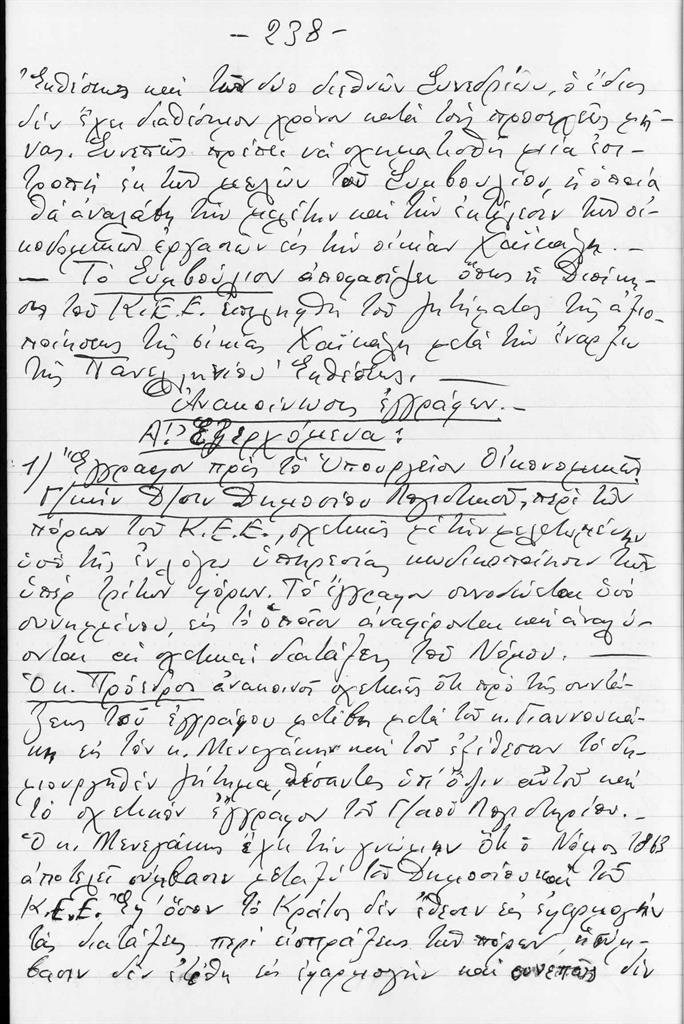 - 238 -
Ἐκθέσεως καί τῶν δύο διεθνῶν Συνεδρίων, ὁ ἴδιος
δέν ἔχει διαθέσιμον χρόνον κατά τούς προσεχεῖς μῆ-
νας. Συνεπῶς πρέπει νά σχηματισθῇ μία ἐπι-
τροπή ἐκ τῶν μελῶν τοῦ Συμβουλίου, ἡ ὁποία
θά ἀναλάβῃ τήν μελέτην καί τήν ἐκτέλεσιν τῶν οἰ-
κοδομικῶν ἐργασιῶν εἰς τήν οἰκίαν Χαϊκάλη. -
- Τό Συμβούλιον ἀποφασίζει ὅπως ἡ Διοίκη-
σις τοῦ Κ.Ε.Ε. ἐπιληφθῇ τοῦ ζητήματος τῆς ἀξιο-
ποιήσεως τῆς οἰκίας Χαϊκάλη μετά τήν ἔναρξιν
τῆς Πανελληνίου Ἐκθέσεως. -
Ἀνακοίνωσις ἐγγράφων. -
Α! Ἐξερχόμενα:
1) Ἔγγραφον πρός τό Ὑπουργεῖον Οἰκονομικῶν
Γ/κήν Δ/σιν Δημοσίου Λογιστικοῦ, περί τῶν
πόρων τοῦ Κ.Ε.Ε., σχετικῶς μέ τήν μελετωμένην
ὑπό τῆς ἐν λόγῳ ὑπηρεσίας κωδικοποίησιν τῶν
ὑπέρ τρίτων φόρων. Τό ἔγγραφον συνοδεύεται ὑπό
συνημμένου, εἰς τό ὁποῖον ἀναφέρονται καί ἀναλύ-
ονται αἱ σχετικαί διατάξεις τοῦ Νόμου. -
Ὁ κ. Πρόεδρος ἀνακοινοῖ σχετικῶς ὅτι πρό τῆς συντά-
ξεως τοῦ ἐγγράφου μετέβη μετά τοῦ κ. Γιαννουκά-
κη εἰς τόν κ. Μενεγάκην καί τοῦ ἐξέθεσαν τό δη-
μιουργηθέν ζήτημα, θέσαντες ὑπ' ὄψιν αὐτοῦ καί
τό σχετικόν ἔγγραφον τοῦ Γ/κοῦ Λογιστηρίου. -
Ὁ κ. Μενεγάκης ἔχει τήν γνώμην ὅτι ὁ Νόμος 1863
ἀποτελεῖ σύμβασιν μεταξύ τοῦ Δημοσίου καί τοῦ
Κ.Ε.Ε. Ἐφ' ὅσον τό Κράτος δέν ἔθεσεν εἰς ἐφαρμογήν
τάς διατάξεις περί εἰσπράξεως τῶν πόρων, ἡ σύμ-
βασιν δέν ἐτέθη εἰς ἐφαρμογήν καί συνεπῶς δέν